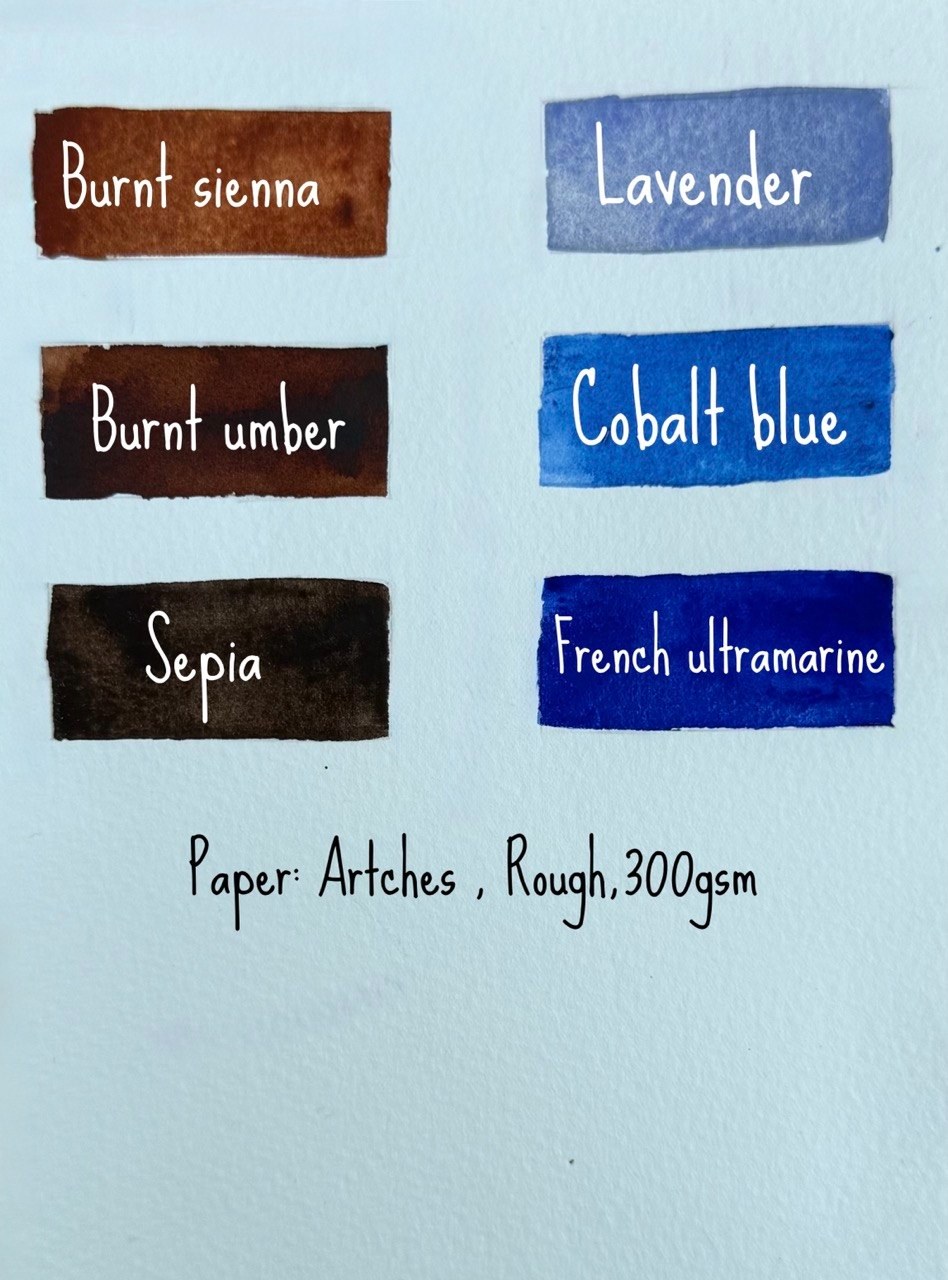 Burnt sienna
Lavender
Burnt umber
Cobalt blue
Sepia
French ultramarine
Paper: Artches , Rough,300gsm